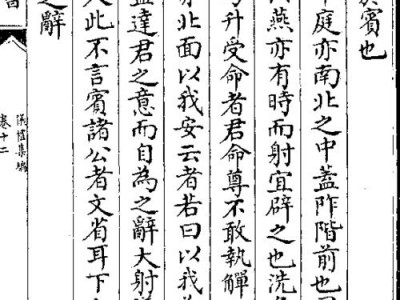 賓也
中庭亦南北之中蓋阼階前也
燕亦有時而射宜辟之也洗
升受命者君命尊不敢執觶
北面以我安云者若曰以我
達君之意而自為之辭大射
此不言賓諸公者文省耳下
之辭
儀禮集編
卷十二